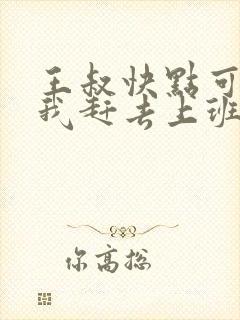 王叔快點可
我赶去上班
你高挖